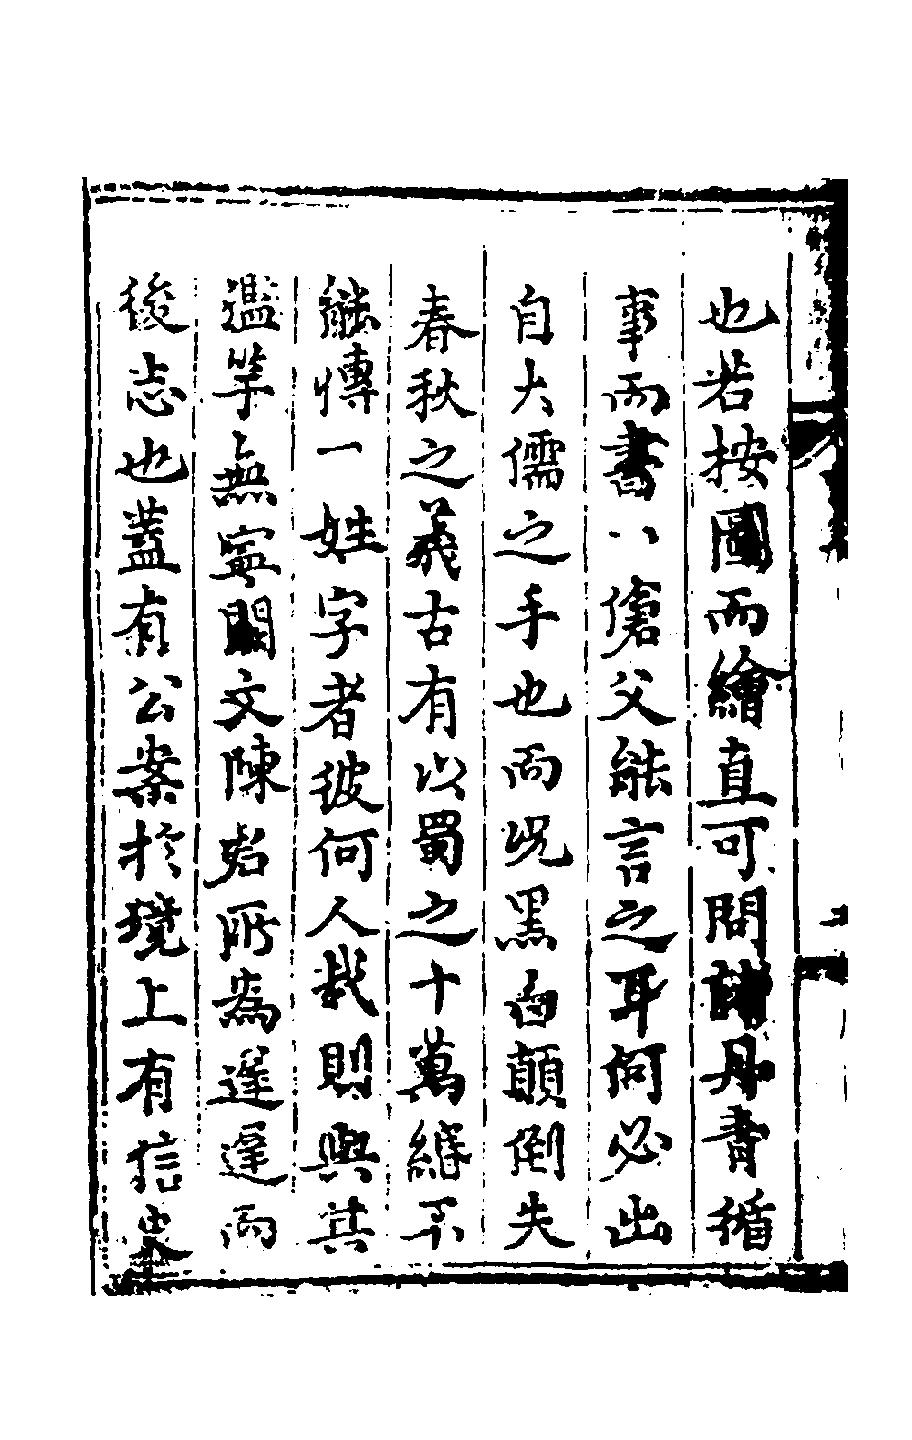 也若按圖而繪直可問諸丹青循
事而書一傖父能言之耳何必出
自大儒之手也而況黑白顛倒失
春秋之義古有以蜀之十萬緡不
能傳一姓字者彼何人哉則與其
濫竽無寧闕文陳君所為遲遲而
後志也蓋有公案於境上有信史